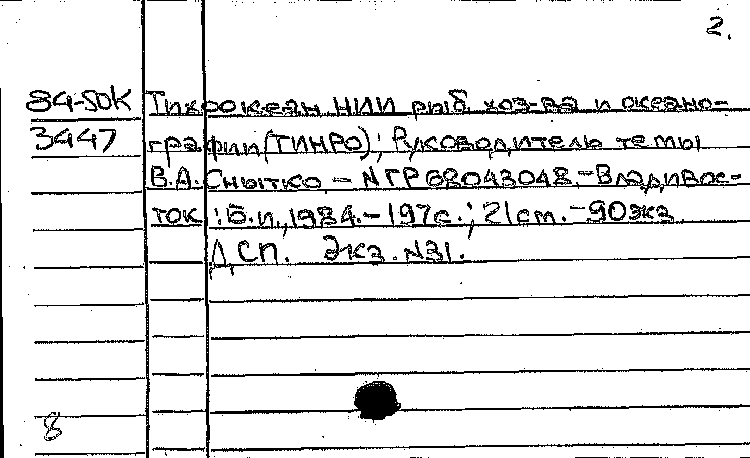 2.
84-50К Тихоокеан. НИИ рыб. хоз-ва и океано-
3447 графии (ТИНРО); Руководитель темы
В.А. Снытко. – N ГР 68043048. – Владивос-
ток : Б.и., 1984. – 197с. ; 21см. – 90экз
ДСП. Экз. N31.
8